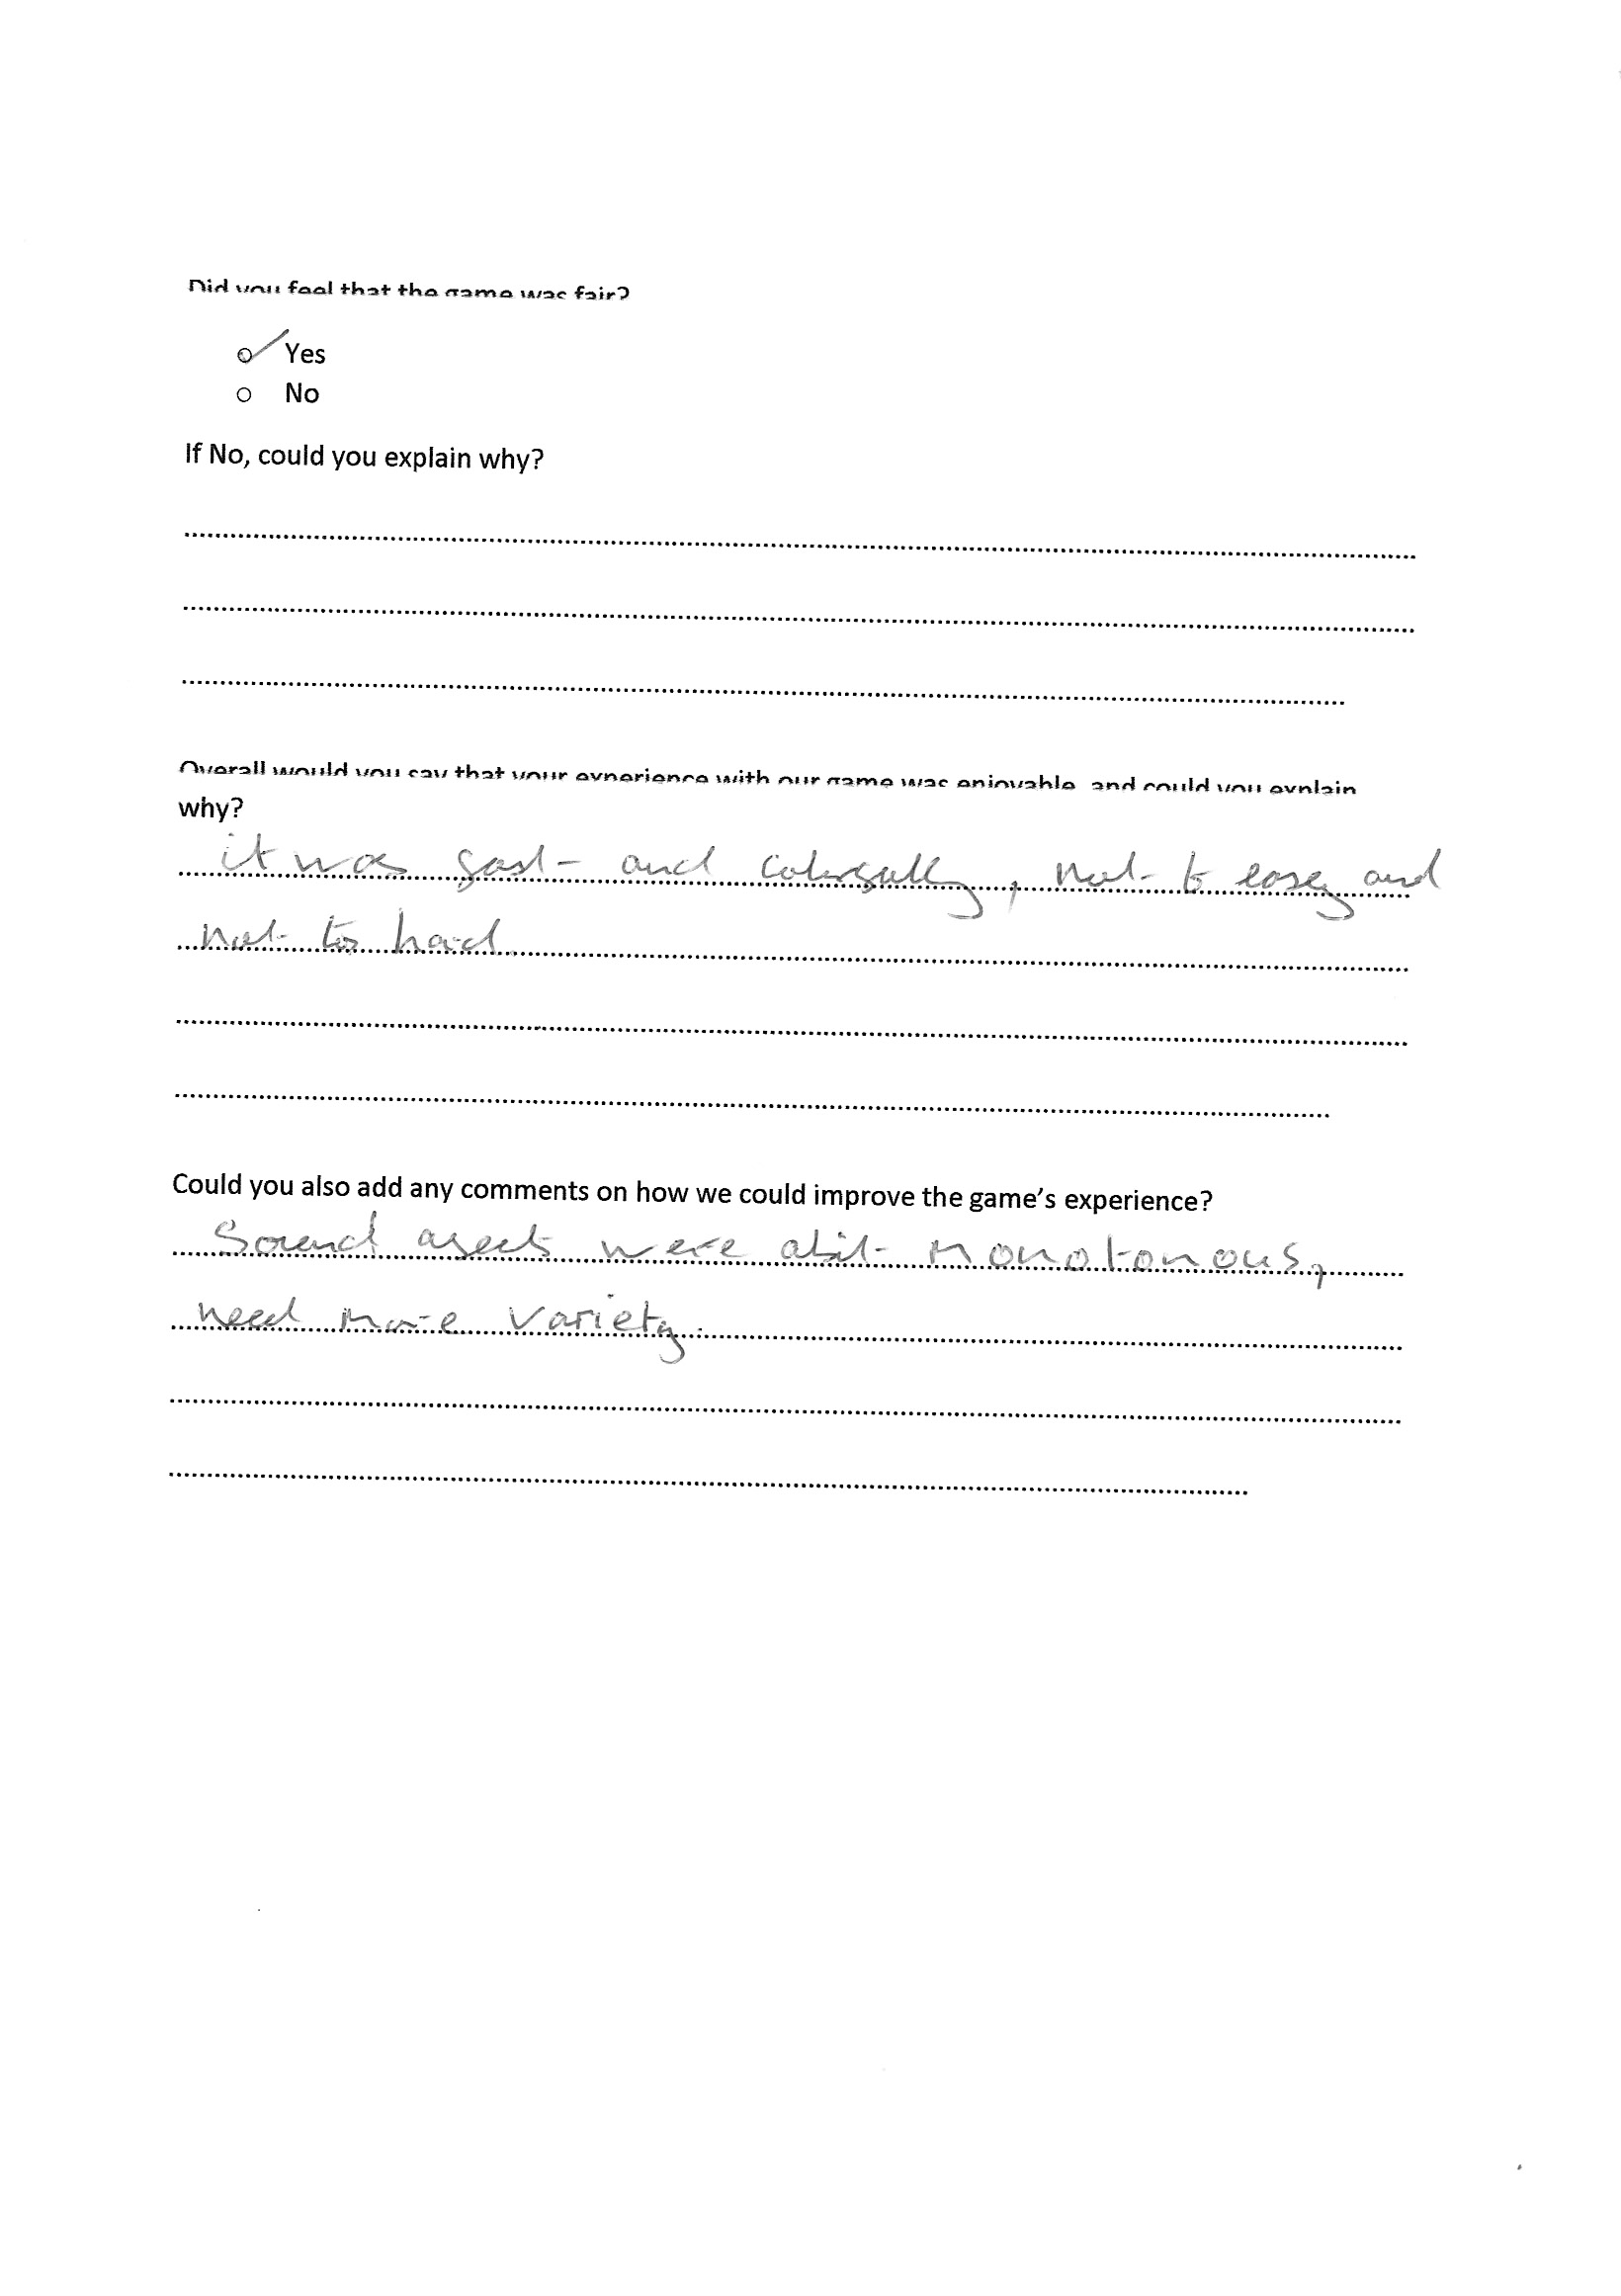 Did you feel that the game was fair?
Yes
No
If No, could you explain why?
Overall would you say that your experience with our game was enjoyable, and could you explain
why?
it was fast and , not to easy and
not to hard.
Could you also add any comments on how we could improve the game's experience?
Sound asects were abit monotonous,
need more variety.